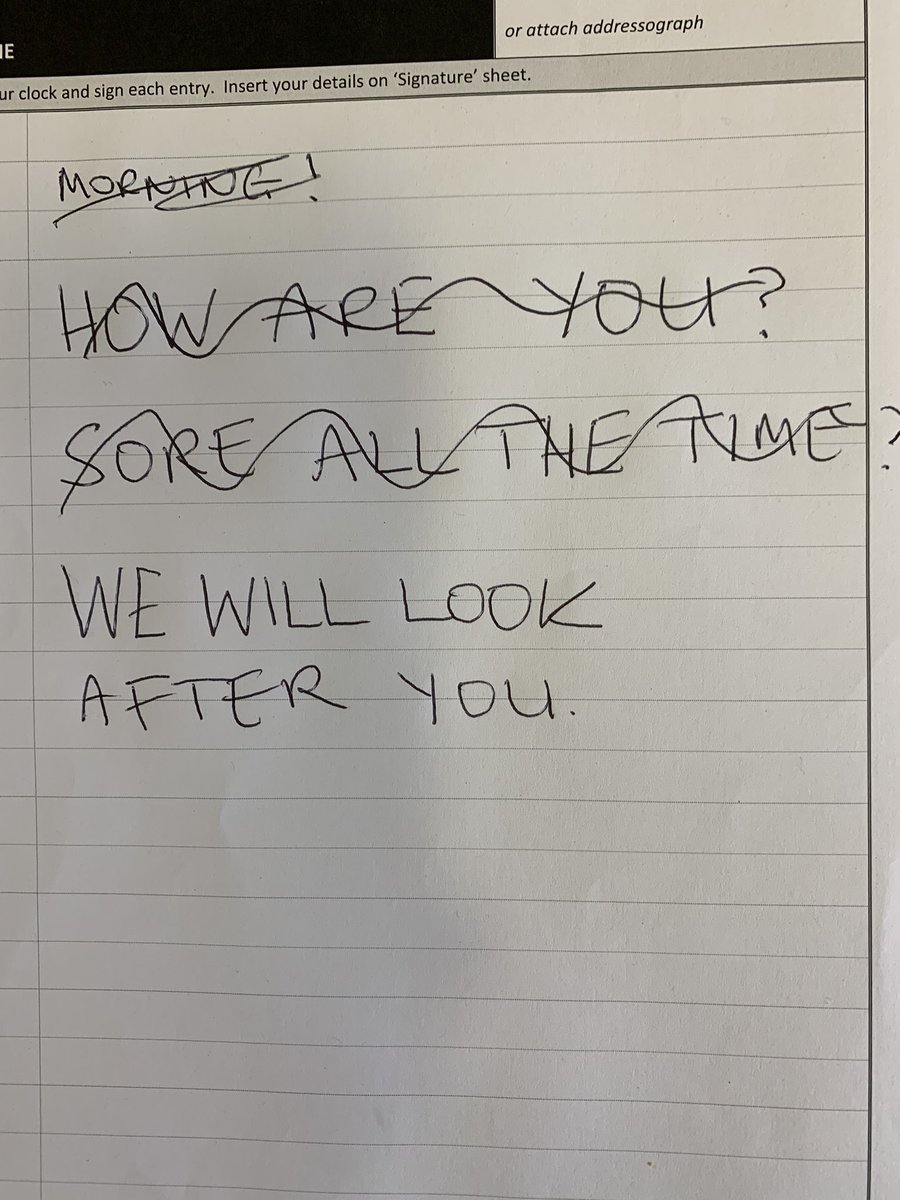 or attach addressograph
ur clock and sign each entry. Insert your details on ‘Signature’ sheet.
MORNING!
HOW ARE YOU?
SORE ALL THE TIME?
WE WILL LOOK
AFTER YOU.